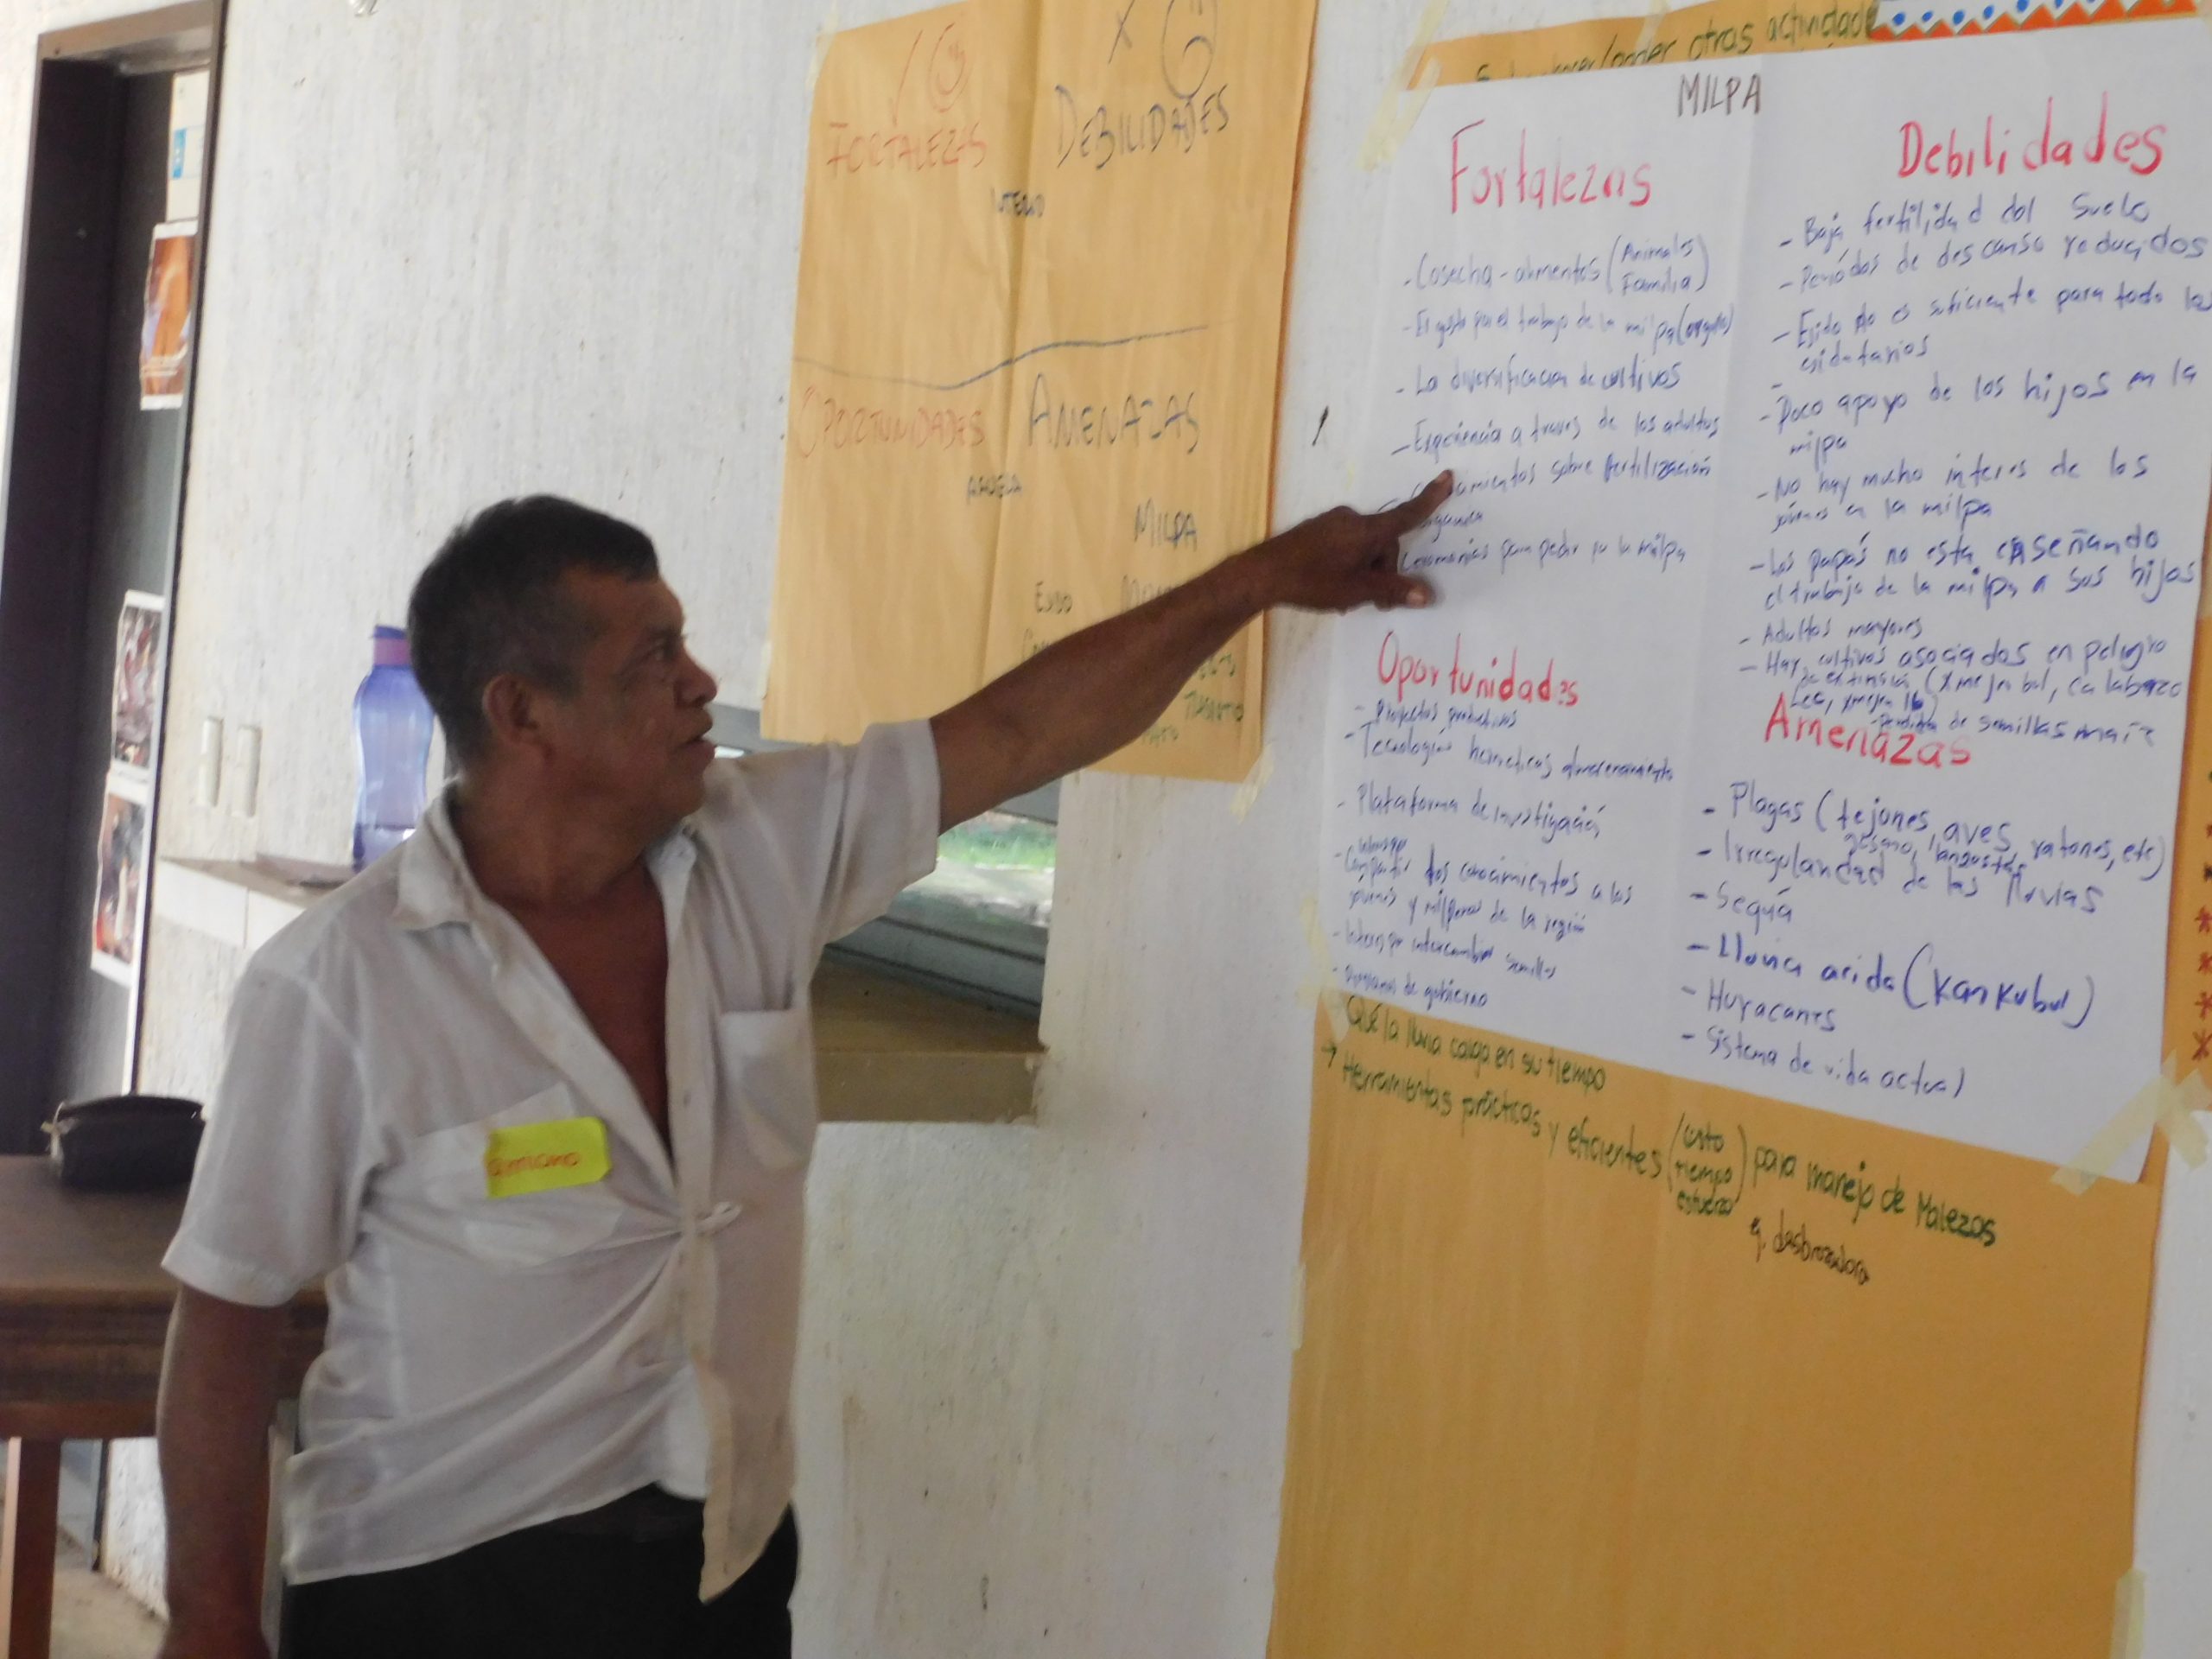 FORTALEZAS
DEBILIDADES
INTERNO
OPORTUNIDADES
AMENAZAS
MILPA
otras actividade
MILPA
Fortalezas
- Cosecha - alimentos (Animales
Familia)
- El gusto por el trabajo de la milpa (orgullo)
- La diversificacion de cultivos
- Experiencia a traves de los adultos
sobre fertilización
Ceremonias para pedir la milpa
Debilidades
- Baja fertilidad del Suelo
- Periódos de descanso reducidos
- Ejido No es suficiente para todo los
ejidatarios
-
- Poco apoyo de los hijos en la
milpa
- No hay mucho interes de los
jóvenes en la milpa
- Los papás no esta enseñando
el trabajo de la milpa a sus hijos
- Adultos mayores
- Hay cultivos asociados en peligro
de extinsion (Xmejen bul, calabaza
- Perdida de semillas maiz
Oportunidades
- Proyectos productivos
- Tecnologias hermeticas almacenamiento
- Plataforma de investigación
- Compartir los conocimientos a los
jóvenes y milperos de la región
- Interes por intercambiar semillas
- Programas de gobierno
Amenazas
- Plagas (tejones, aves, ratones, etc)
gusano, langosta
- Irregularidad de las lluvias
- Sequía
- Lluvia acida (Kan Kubul)
- Huracanes
- Sistema de vida actual
Qué la lluvia caiga en su tiempo
→ Herramientas prácticas y eficientes (costo
tiempo
esfuerzo) para manejo de Malezas
ej. desbrozadora